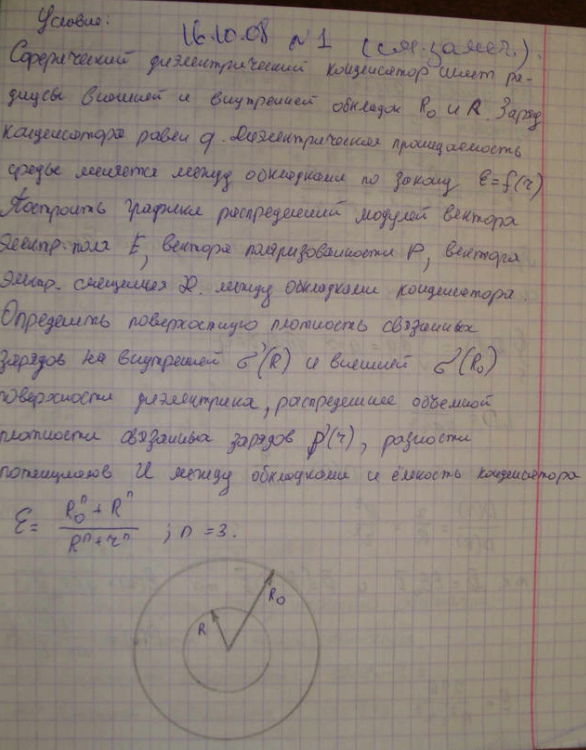 Условие:
16.10.08 №1 (см. замеч.)
Сферический диэлектрический конденсатор имеет ра-
диусы внешней и внутренней обкладок R₀ и R. Заряд
конденсатора равен q. Диэлектрическая проницаемость
среды меняется между обкладками по закону ε=f(r)
Построить графики распределений модулей вектора
электр. поля E, вектора поляризованности P, вектора
электр. смещения D. между обкладками конденсатора.
Определить поверхностную плотность связанных
зарядов на внутренней σ'(R) и внешней σ'(R₀)
поверхности диэлектрика, распределение объемной
плотности связанных зарядов ρ'(r), разности
потенциалов U между обкладками и ёмкость конденсатора
ε = (R₀ⁿ + Rⁿ) / (Rⁿ + rⁿ) ; n = 3.
R₀
R